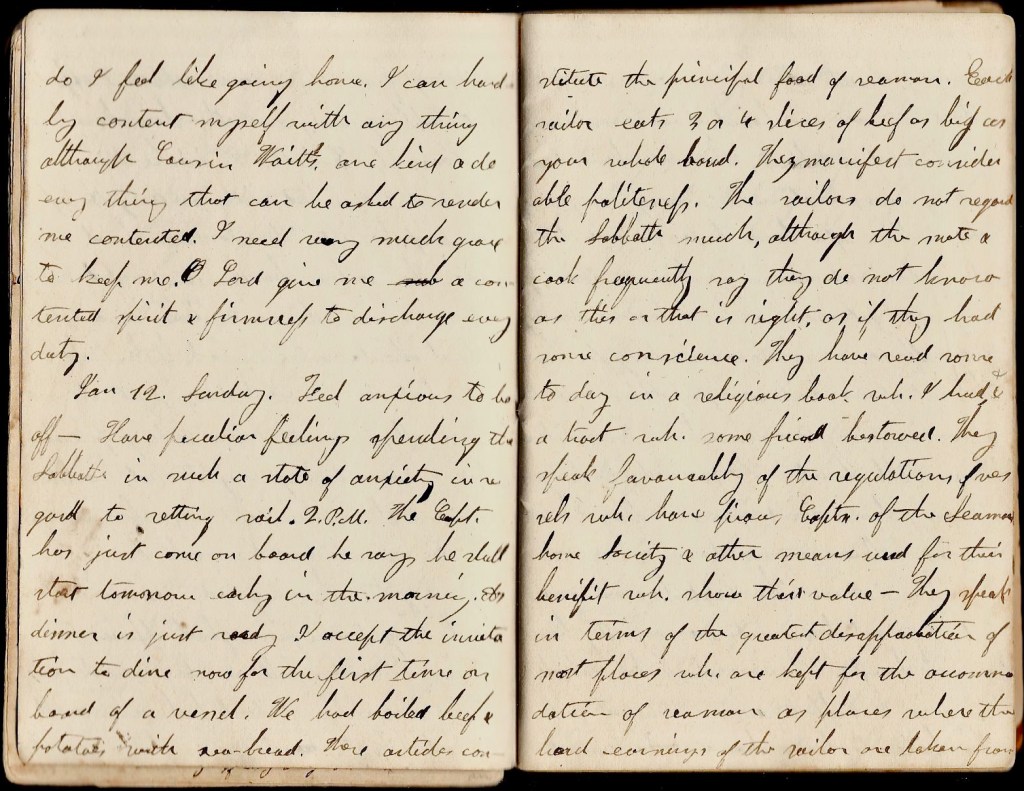 do I feel like going home. I can hard-
ly content myself with any thing
although Cousin Waitts. are kind & do
every thing that can be asked to render
me contented. I need very much grace
to keep me. O Lord give me a con-
tented spirit & firmness to discharge every
duty.
Jan 12. Sunday. Feel anxious to be
off — Have peculiar feelings spending the
Sabbath in such a state of anxiety in re
gard to setting sail. 2. P.M. The Capt.
has just come on board he says he shall
start tomorrow early in the morning. As
dinner is just ready I accept the invita
tion to dine now for the first time on
board of a vessel. We had boiled beef &
potatoes with sea-bread. These articles con-
stitute the principal food of seaman. Each
sailor eats 3 or 4 slices of beef as big as
your whole hand. They manifest consider
able politeness. The sailors do not regard
the Sabbath much, although the mate &
cook frequently say they do not know
as this or that is right, as if they had
some conscience. They have read some
to day in a religious book wh. I had &
a tract wh. some friend bestowed. They
speak favourably of the regulations of ves
sels wh. have pious Capts. of the Seamans
home Society & other means used for their
benefit wh. show their value — They speak
in terms of the greatest disapprobation of
most places wh. are kept for the accommo
dation of seaman as places where the
hard earnings of the sailor are taken from